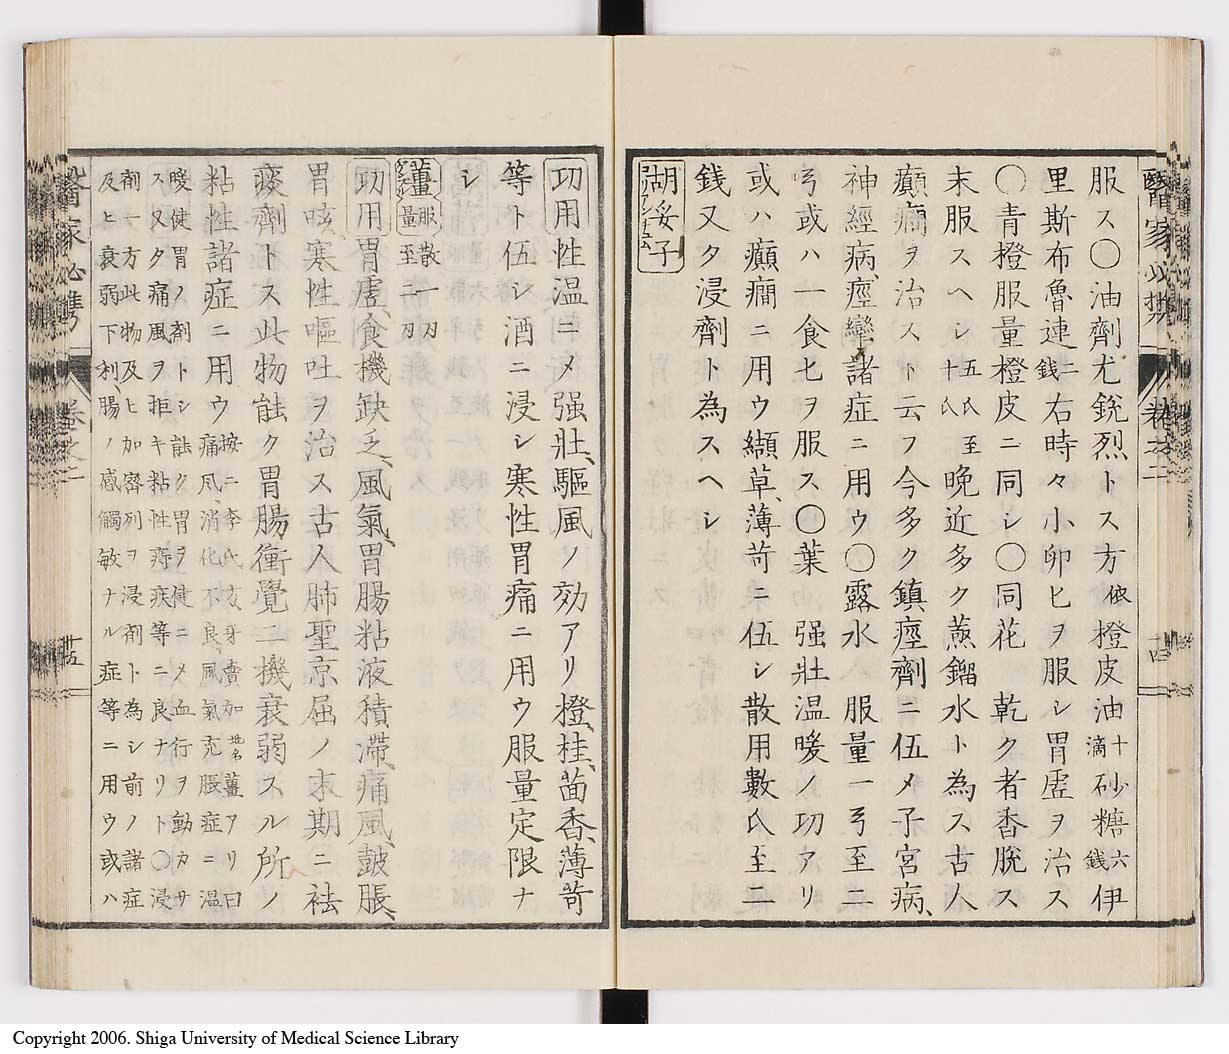 服ス〇油劑尤鋭烈トス方依橙皮油十滴砂糖六銭伊
里斯布魯連二銭右時々小卯ヒヲ服シ胃虚ヲ治ス
〇青橙服量橙皮ニ同シ〇同花 乾ク者香脱ス
末服スヘシ五氏至十氏晩近多ク蒸鎦水ト為ス古人
癲癇ヲ治スト云フ今多ク鎮痙劑ニ伍メ子宮病、
神經病、痙攣諸症ニ用ウ〇露水 服量一弓至二
弓或ハ一食匕ヲ服ス〇葉 强壯温暖ノ功アリ
或ハ癲癇ニ用ウ纈草、薄苛ニ伍シ散用數氏至二
銭又タ浸劑ト為スヘシ
胡荽子
功用性温ニメ强壯、驅風ノ効アリ橙、桂、茴香、薄苛
等ト伍シ酒ニ浸シ寒性胃痛ニ用ウ服量定限ナ
シ
薑 服量散一刃至二刃
功用胃虚、食機缺乏、風氣、胃腸粘液積滞、痛風、皷脹、
胃咳、寒性嘔吐ヲ治ス古人肺聖京屈ノ末期ニ袪
痰劑トス此物能ク胃腸衝覺ニ機衰弱スル所ノ
粘性諸症ニ用ウ按ニ李氏方牙賣加地名薑アリ曰
痛風、消化不良、風氣充脹症ニ温
暖健胃ノ劑トシ能ク胃ヲ健ニメ血行ヲ動カサ
ス又タ痛風ヲ拒キ粘性疾等ニ良ナリト〇浸
劑一方此物及ヒ加密列ヲ浸劑ト為シ前ノ諸症
及ヒ衰弱下利、腸ノ感觸敏ナル症等ニ用ウ或ハ
醫家必携 卷之二 十四
醫家必携 卷之二 十五
Copyright 2006. Shiga University of Medical Science Library